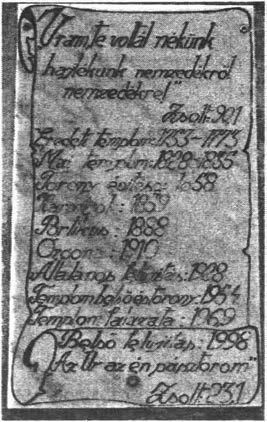 "Uram, te voltál nékünk
hajlékunk nemzedékről
nemzedékre!"
Zsolt: 90.1
Eredeti templom: 1753-1773
Mai templom: 1828-1835
Torony építése: 1858
1859
Portikus: 1888
Orgona: 1910
Általános felújítás: 1928
Templombelső és torony: 1954
Templom 1969
Belső felújítás: 1998
"Az Úr az én pásztorom"
Zsolt: 23.1